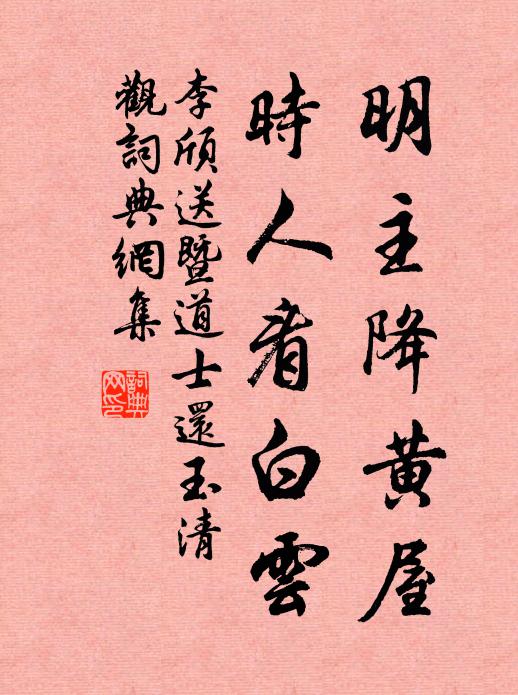 明主降黄屋
時人看白雲
李頎送暨道士還玉清
觀詞典網集
詞典
网印